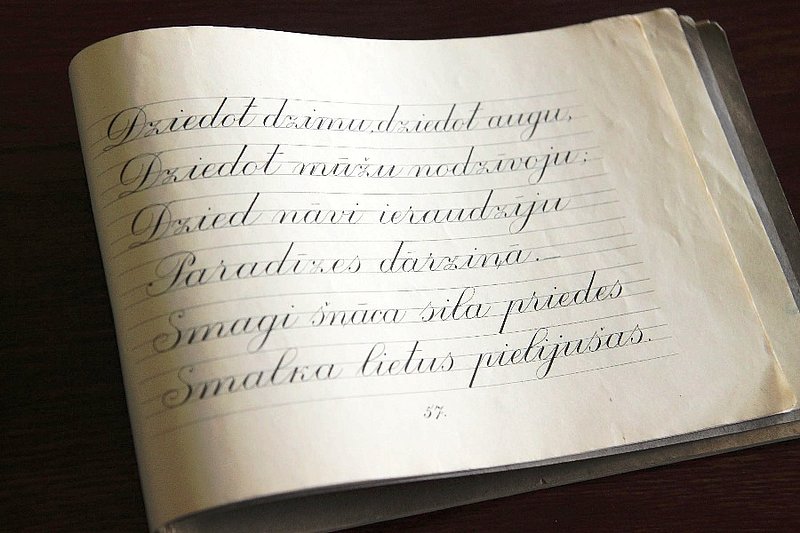 Dziedot dzimu, dziedot augu,
Dziedot mūžu nodzīvoju;
Dzied nāvi ieraudziju
Paradīzes dārziņā.—
Smagi šnāca sila priedes
Smalka lietus pielijušas.
57.